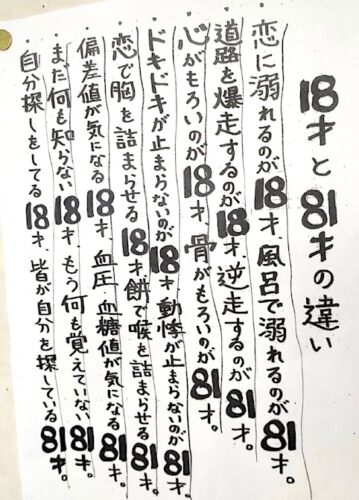 18才と81才の違い
恋に溺れるのが18才、風呂で溺れるのが81才。
道路を爆走するのが18才、逆走するのが81才。
心がもろいのが18才、骨がもろいのが81才。
ドキドキが止まらないのが18才、動悸が止まらないのが81才。
恋で胸を詰まらせる18才、餅で喉を詰まらせる81才。
偏差値が気になる18才、血圧、血糖値が気になる81才。
まだ何も知らない18才、もう何も覚えていない81才。
自分探しをしてる18才、皆が自分を探している81才。